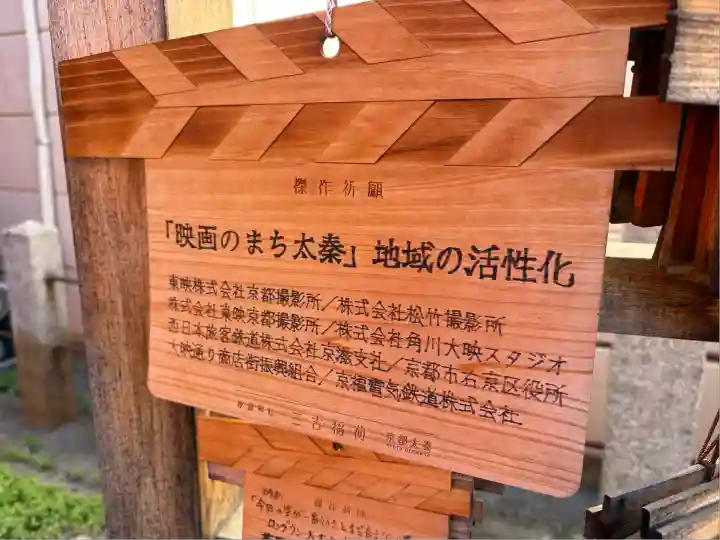 傑作祈願
「映画のまち太秦」地域の活性化
東映株式会社京都撮影所／株式会社松竹撮影所
株式会社東映京都撮影所／株式会社角川大映スタジオ
西日本旅客鉄道株式会社京滋支社／京都市右京区役所
大映通り商店街振興組合／京福電気鉄道株式会社
三吉稲荷 京都太秦
傑作祈願